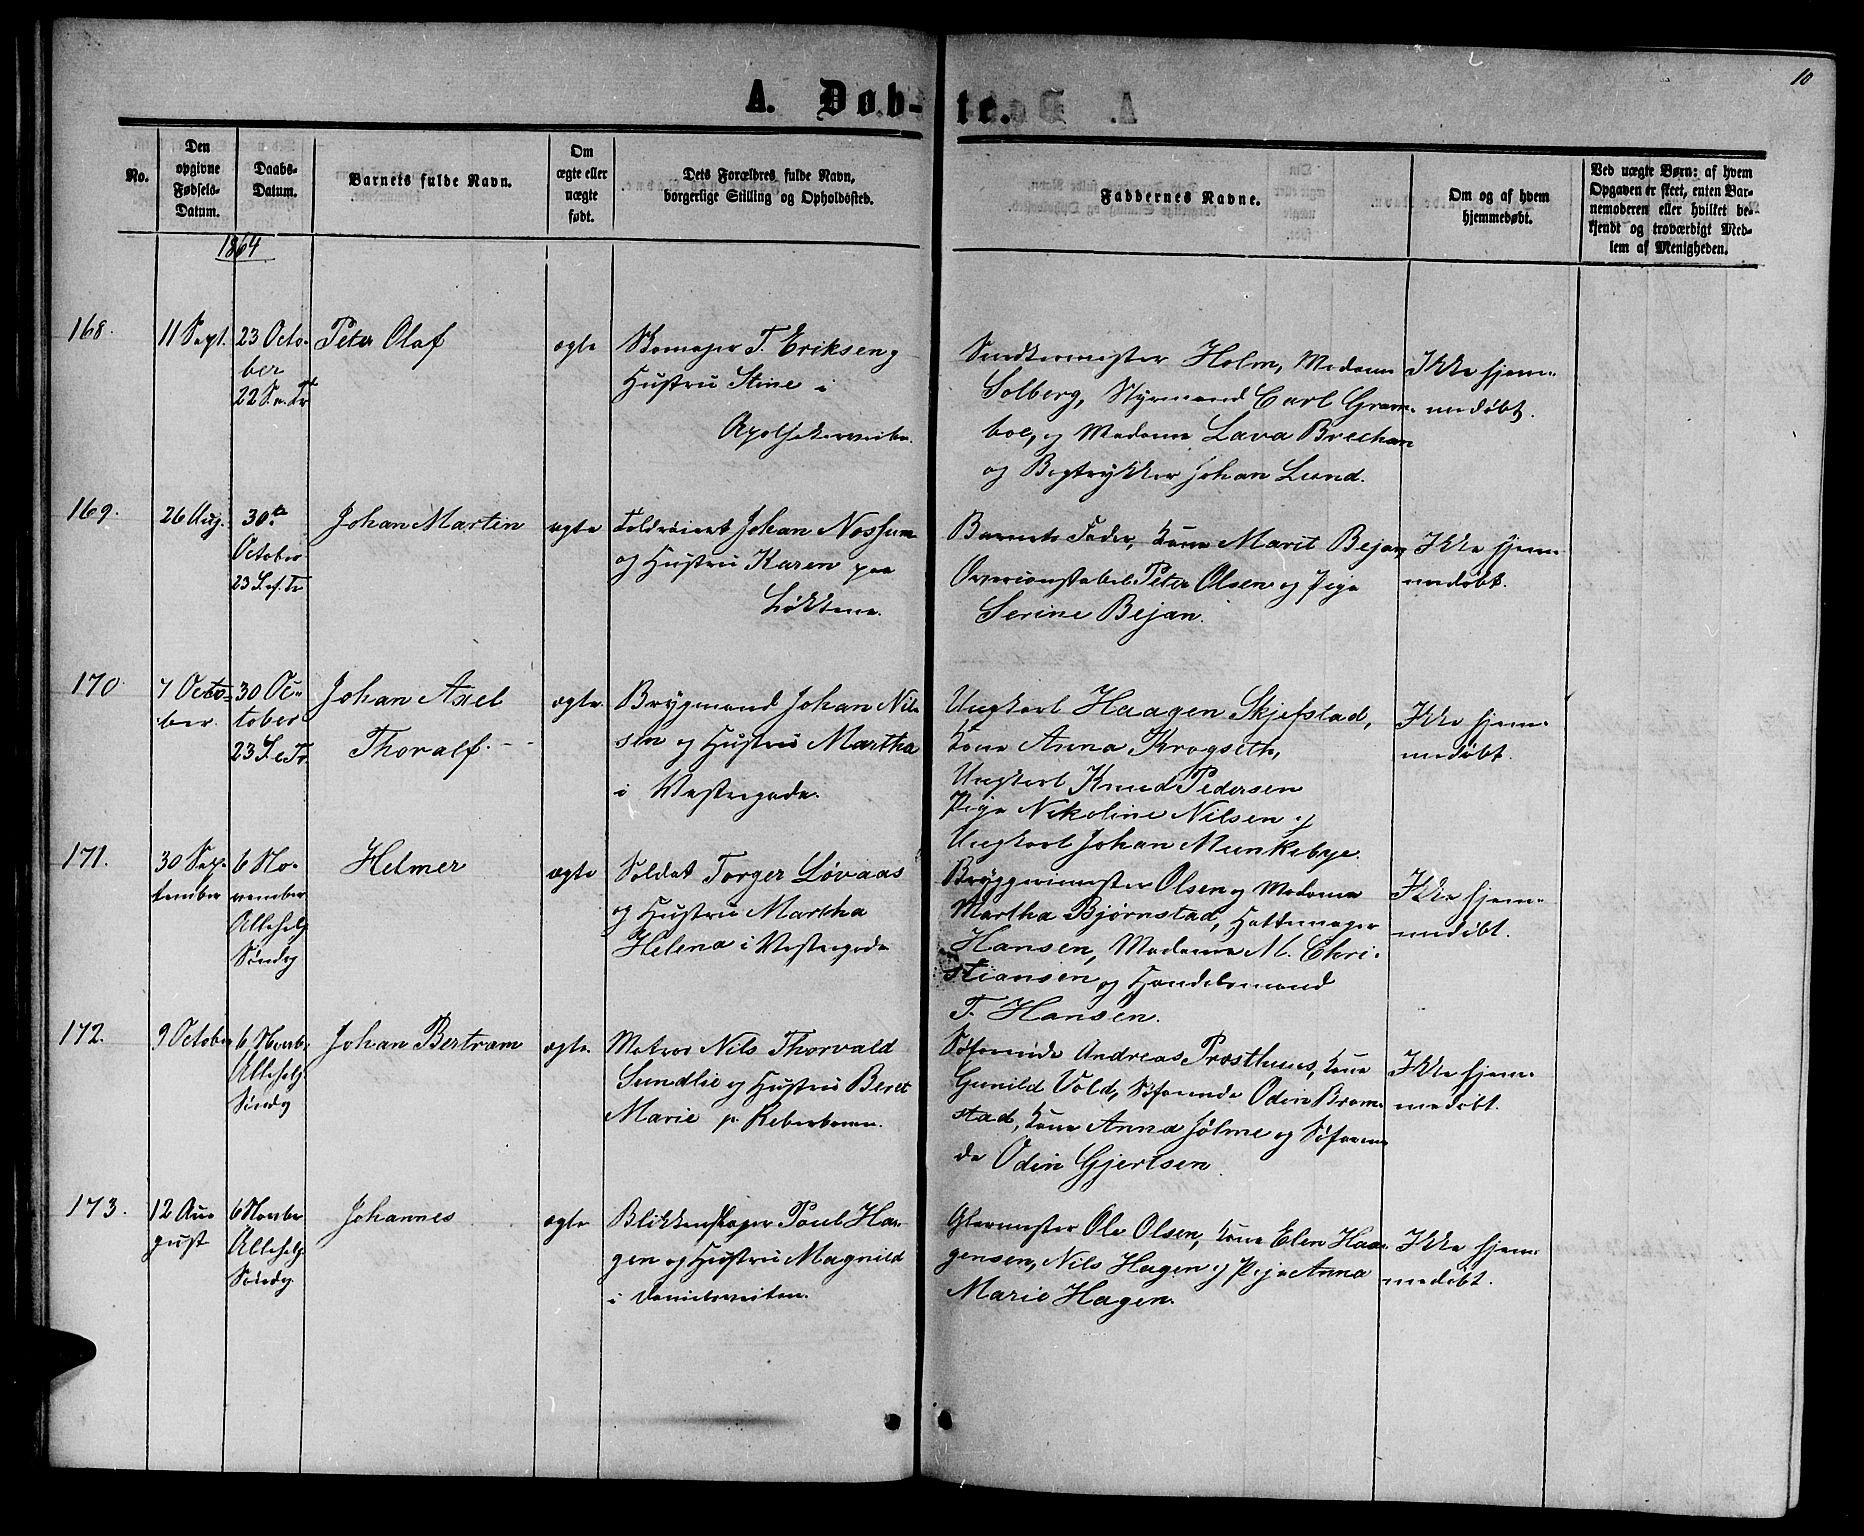 10
A. Døb-te.
No.
Den
opgivne
Fødsels-
Datum.
Daabs-
Datum.
Barnets fulde Navn.
Om
ægte eller
uægte
født.
Dets Forældres fulde Navn,
borgerlige Stilling og Opholdssted.
Faddernes Navne.
Om og af hvem
hjemmedøbt.
Ved uægte Børn: af hvem
Opgaven er skeet, enten Bar-
nemoderen eller hvilket be-
kjendt og troværdigt Med-
lem af Menigheden.
1864
168.
11 Sept.
23 Octo-
ber
22 S. e. Tr
Peter Olaf
ægte
Skomager T. Eriksen og
Hustru Stine i
Apothekerveiten.
Snedkermester Holm, Madame
Solberg, Styrmand Carl Gram-
boe, og Madame Lava Brechan
og Bogtrykker Johan Lund.
Ikke hjem-
medøbt.
169.
26 Aug.
30te
October
23 S. e. Tr
Johan Martin
ægte
Toldroiert Johan Nossum
og Hustru Karen paa
Løkkene.
Barnets Fader, Kone Marit Bejan
Overconstabel Peter Olsen og Pige
Serine Bejan.
Ikke hjem-
medøbt.
170
7 Octo-
ber.
30 Oc-
tober
23 S. e Tr
Johan Axel
Thoralf.
ægte.
Brygmand Johan Nil-
sen og Hustru Martha
i Vestregade.
Ungkarl Haagen Skjefstad,
Kone Anna Krogseth,
Ungkarl Knud Pedersen
Pige Nikoline Nilsen og
Ungkarl Johan Munkebye.
Ikke hjem-
medøbt.
171.
30 Sep-
tember
6 No-
vember
Allehelg
Søndg
Helmer
ægte
Soldat Torger Løvaas
og Hustru Martha
Helena i Vestregade
Bryggermester Olsen og Madame
Martha Bjørnstad, Hattemager
Hansen, Madame M. Chri-
stiansen og Handelsmand
T. Hansen.
Ikke hjem-
medøbt.
172.
9 October
6 Novbr.
Allehelg
Søndg
Johan Bertram
ægte.
Matros Nils Thorvald
Sundlie og Hustru Beret
Marie p. Reberbanen.
Søfarende Andreas Prosthuus, Kone
Gunild Vold, Søfarende Odin Bram-
stad, Kone Anna Jølme og Søfaren-
de Odin Gjertsen.
Ikke hjem-
medøbt.
173.
12 Au-
gust
6 Novbr
Allehelg
Søndg.
Johannes
ægte
Blikkenslager Paul Ha-
gen og Hustru Magnild
i Danielsveiten.
Glarmester Ole Olsen, Kone Elen Haa-
gensen, Nils Hagen og Pige Anna
Marie Hagen.
Ikke hjem-
medøbt.